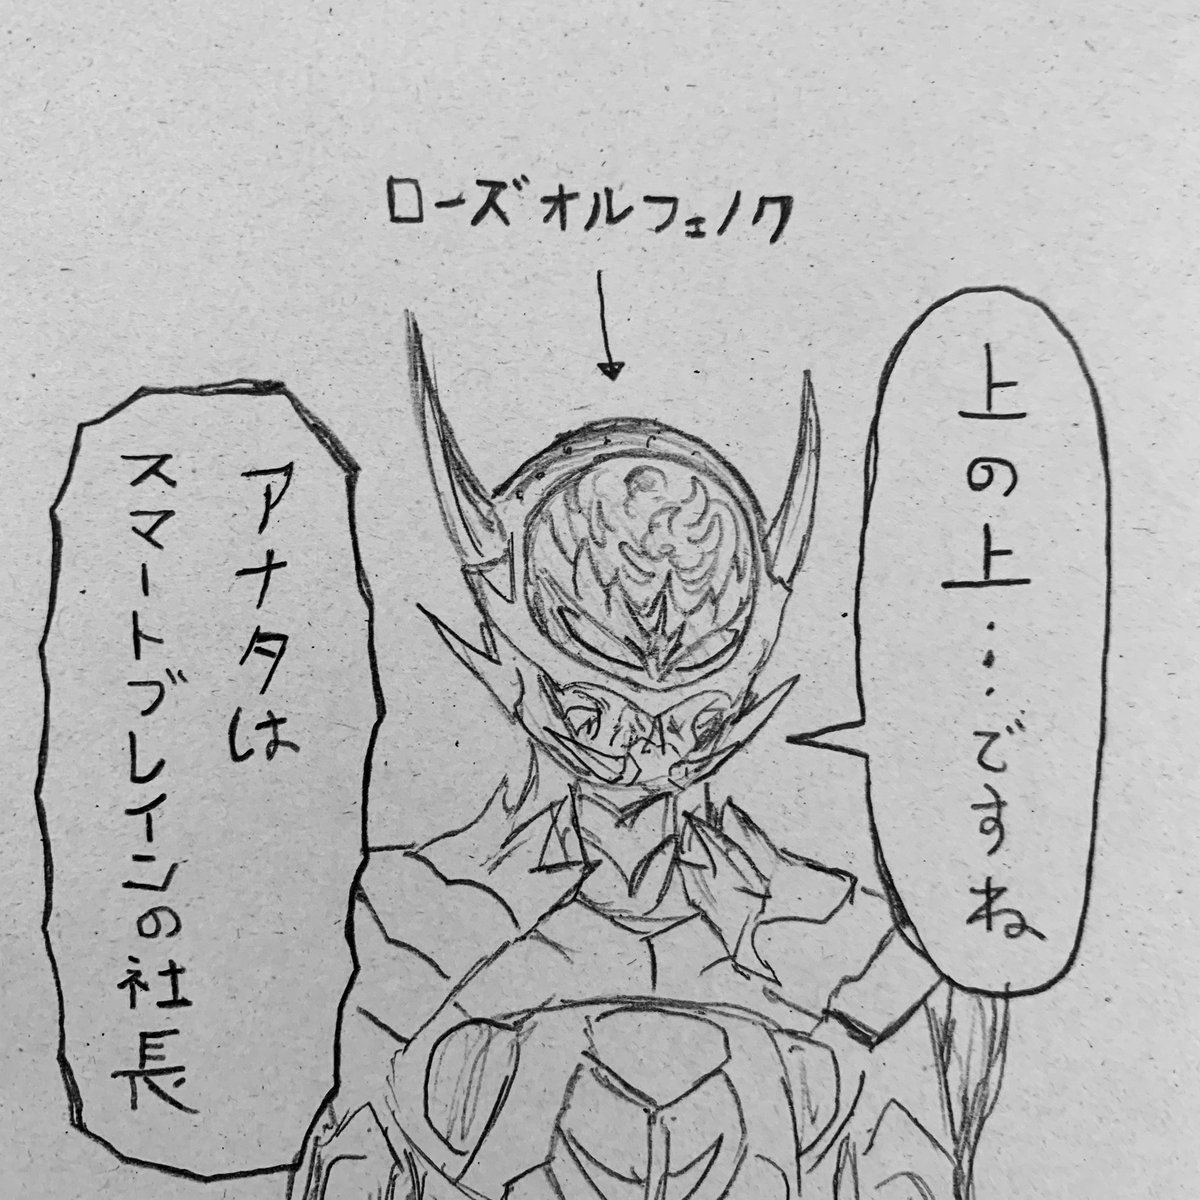 ローズオルフェノク
上の上…ですね
アナタは
スマートブレインの社長